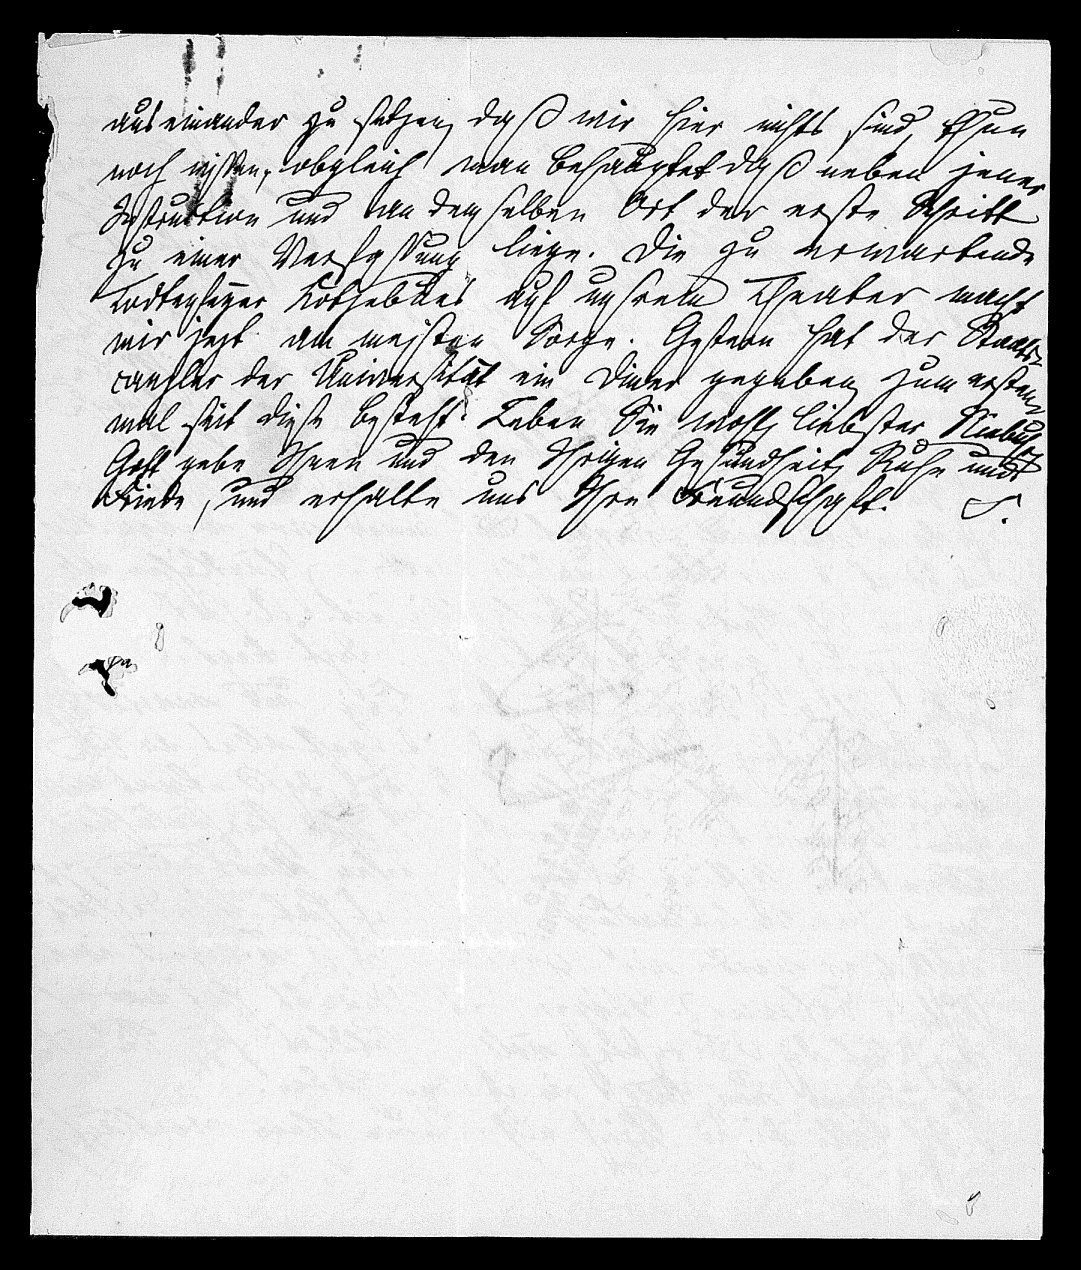 auseinander zu setzen, daß wir hier nichts sind, thun
noch wissen, obgleich man behauptet daß neben jener
Instruction und an demselben Ort der erste Schritt
zu einer Verfassung liege. Die zu erwartende
Todtenfeyer Kotzebues auf unserem Theater macht
mir jezt am meisten Sorge. Gestern hat der Staats-
canzler der Universität ein Diner gegeben, zum ersten-
mal seit diese besteht. Leben Sie wohl, liebster Niebuhr,
Gott gebe Ihnen und den Ihrigen Gesundheit, Ruhe und
Friede, und erhalte uns Ihre Freundschaft. S.